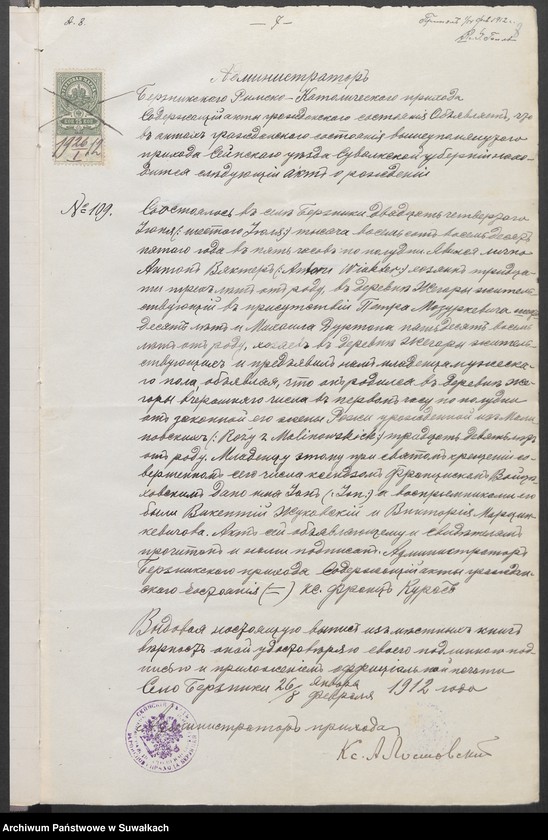 Д. 8.
— 7 —
1912 г.
Администраторъ
Берзникскаго Римско-Католическаго прихода
Содержащій акты гражданскаго состоянія Объявляетъ, что
въ актахъ гражданскаго состоянія вышеупомянутаго
прихода Сейнскаго уѣзда Сувалкской губерніи нахо-
дится слѣдующій актъ о рожденіи
1926/I 12
№ 109.
Состоялось въ селѣ Берзники двадцать четвертаго
Іюня (: шестого Іюля) тысяча восемьсотъ восемьдесятъ
пятаго года въ пять часовъ по полудни. Явился лично
Антонъ Векторъ (: Antoni Wiaktor)
ти трехъ лѣтъ отъ роду, въ деревнѣ Жегары житель-
ствующій въ присутствіи Петра Мазуркевича
десятъ лѣтъ и Михаила Дуртона пятьдесятъ восемь
лѣтъ отъ роду, хозяевъ въ деревнѣ Жегары житель-
ствующихъ и предъявилъ намъ младенца мужеска-
го пола, объявляя, что онъ родился въ деревнѣ Же-
гары вчерашняго числа въ первомъ часу по полудни
отъ законной его жены Розы урожденной изъ Мали-
новскихъ (: Rozy z Malinowskich) тридцать девять лѣтъ
отъ роду. Младенцу этому при святомъ крещеніи со-
вершенномъ сего числа ксендзомъ Францискомъ Войця-
ховскимъ дано имя Іонъ (: Jon:) а воспріемниками его
были Викентій Жуковскій и Викторія Марцин-
кевичова. Актъ сей объявляющему и свидѣтелямъ
прочитанъ и нами подписанъ. Администраторъ
Берзникскаго прихода Содержащій акты граждан-
скаго состоянія (—) Кс. Францъ Курасъ
Выдавая настоящую выпись изъ мѣстныхъ книгъ
вѣрность оной удостовѣряю своею подлинною под-
писью и приложеніемъ оффиціальной печати
Село Берзники 26/8 Января/Февраля 1912 года
Администраторъ прихода
Кс. А.
Archiwum Państwowe w Suwałkach